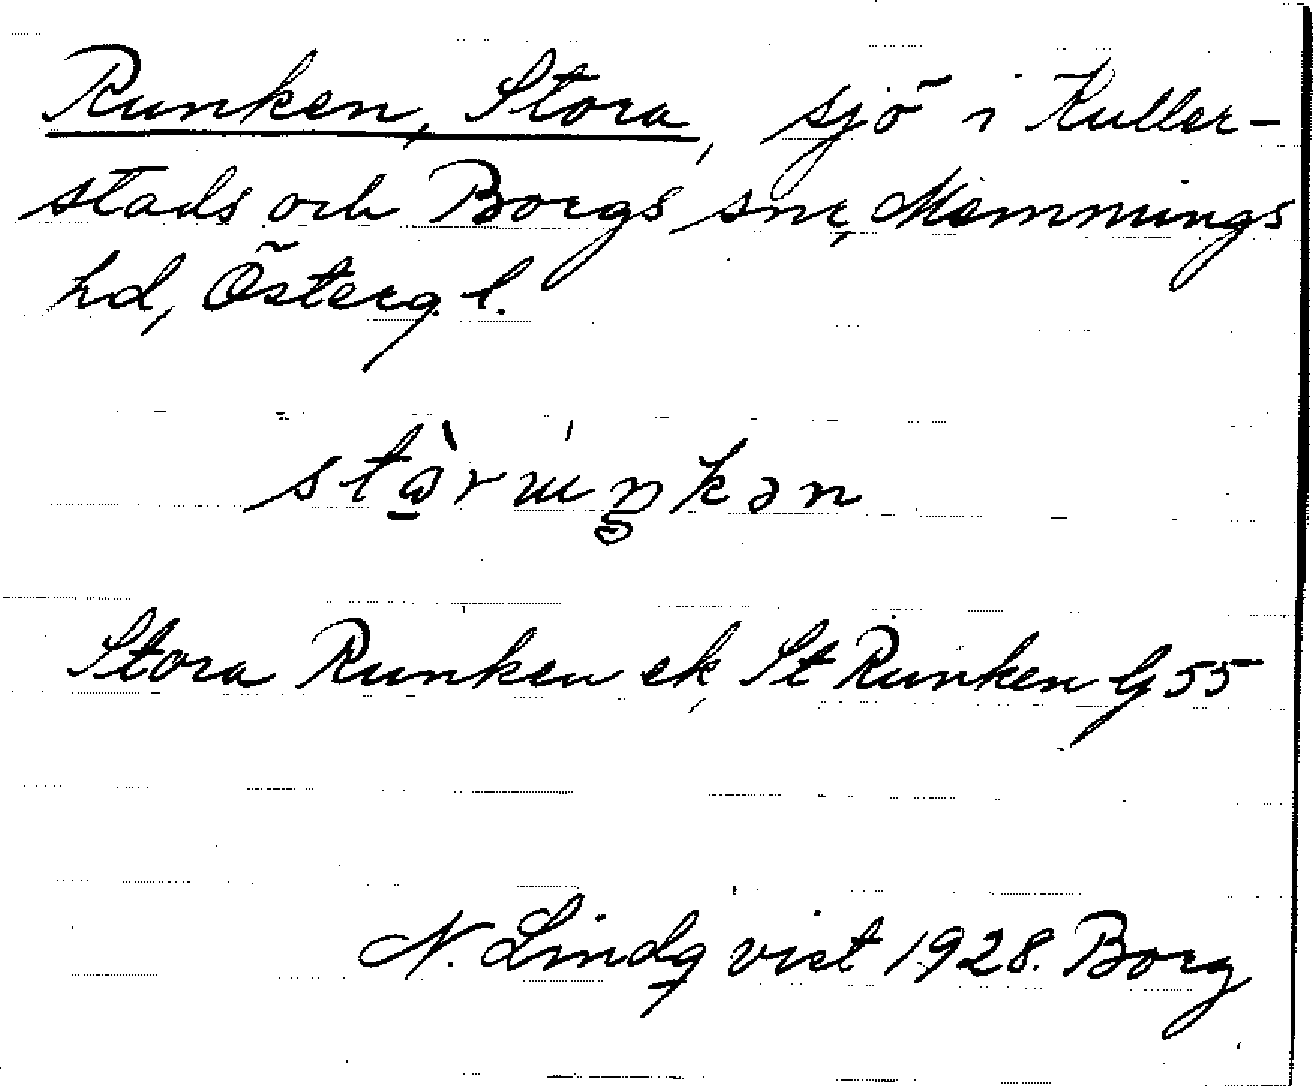 Runken, Stora, sjö i Kuller-
stads och Borgs snr, Memmings
hd, Österg. l.
Stora Runken ek, St Runken G 55
N. Lindqvist 1928. Borg